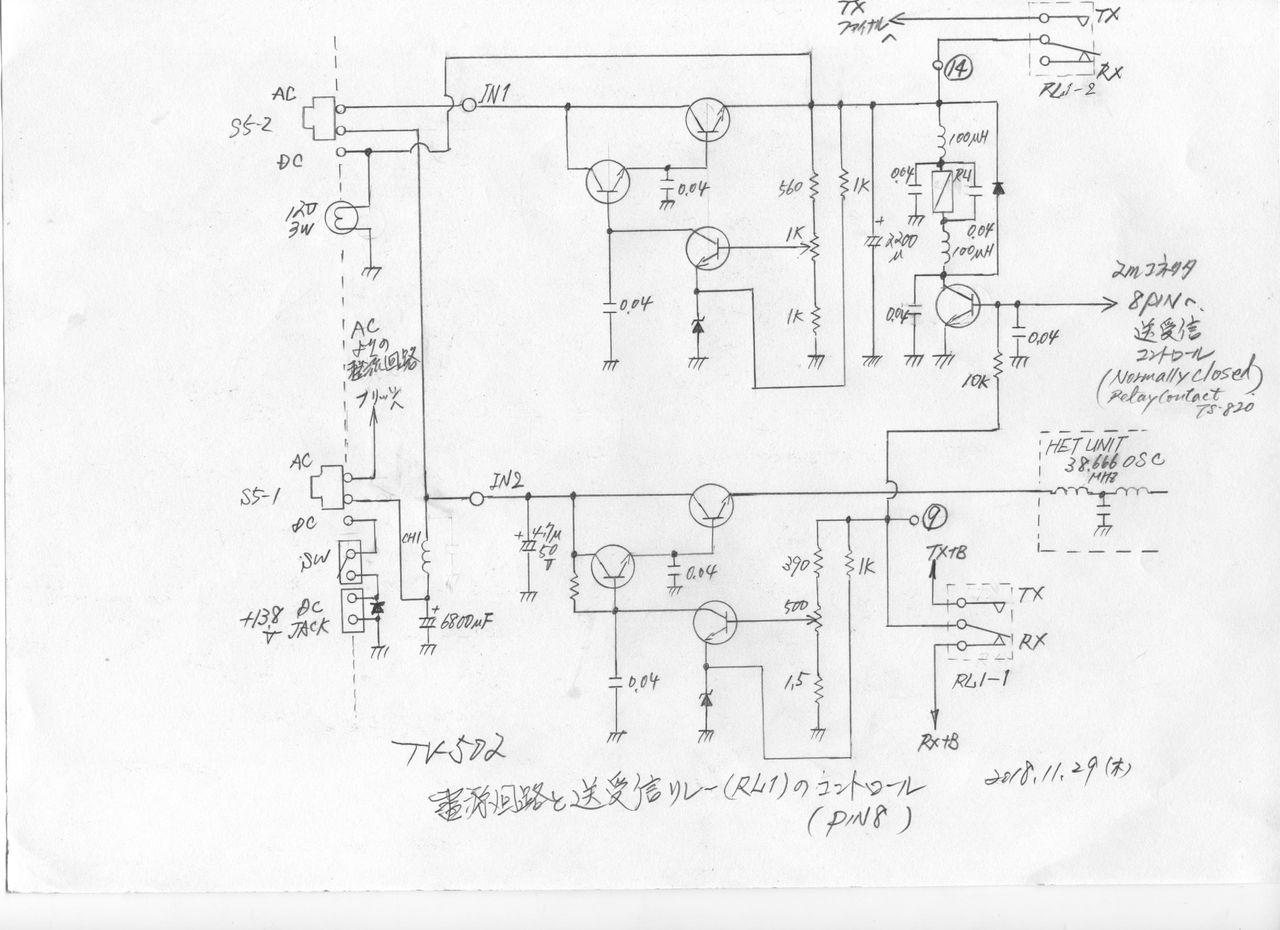 TX
ファイナルへ
TX
RX
RL1-2
14
AC
S5-2
DC
IN1
12V
3W
0.04
560
1K
1K
1K
0.04
+
2200
μ
100μH
0.04
RL1
0.04
100μH
0.04
0.04
10K
2mコネクタ
8PINへ
送受信
コントロール
(Normally closed)
Relay Contact
TS-820
AC
よりの
整流回路
ブリッジへ
AC
S5-1
DC
SW
+13.8
V
DC
JACK
CH1
+
6800μF
IN2
+
4.7μ
50
V
0.04
0.04
390
500
1.5
1K
9
HET UNIT
38.666 OSC
MHz
TX+B
TX
RX
RL1-1
RX+B
TV-502
電源回路と送受信リレー(RL1)のコントロール
(PIN8)
2018.11.29(木)